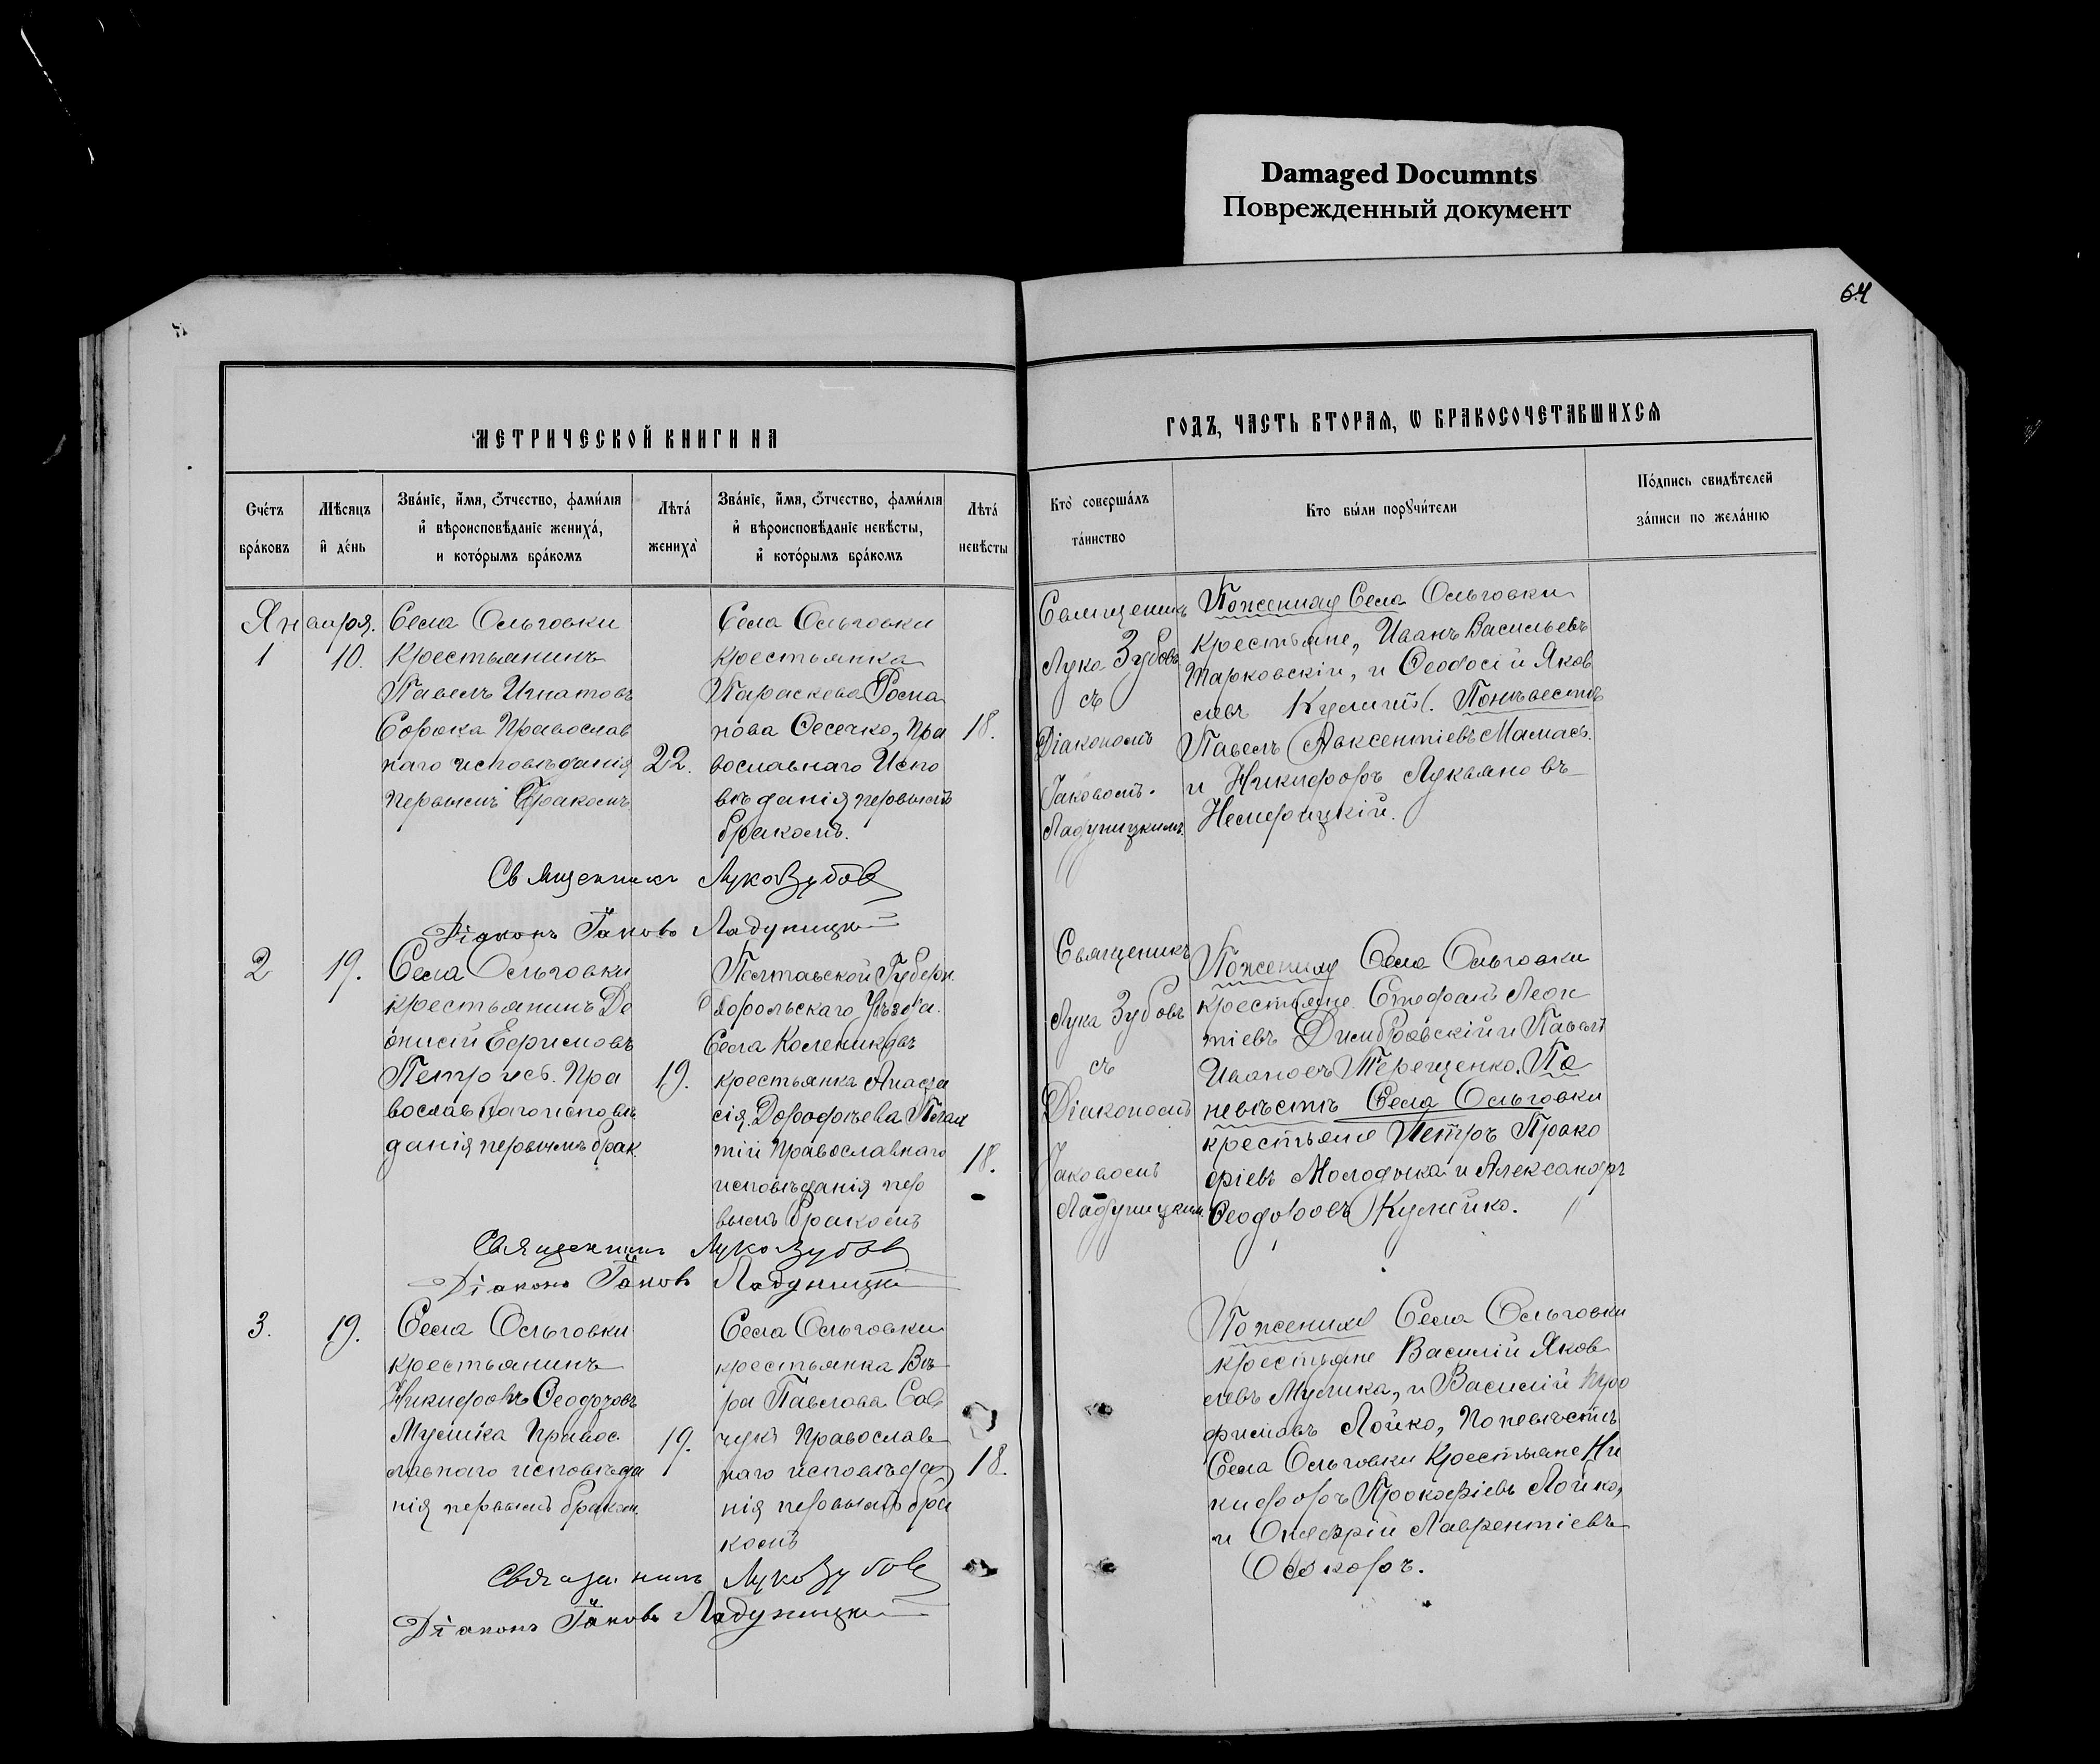 Damaged Documnts
Поврежденный документ
64
МЕТРИЧЕСКОЙ КНИГИ НА
ГОДЪ, ЧАСТЬ ВТОРАЯ, Ѡ БРАКОСОЧЕТАВШИХСЯ
Счетъ браковъ
Мѣсяцъ и день
Званіе, имя, отчество, фамилія
и вѣроисповѣданіе жениха,
и которымъ бракомъ
Лѣта жениха
Званіе, имя, отчество, фамилія
и вѣроисповѣданіе невѣсты,
и которымъ бракомъ
Лѣта невѣсты
Кто совершалъ
таинство
Кто были поручители
Подпись свидѣтелей
записи по желанію
Января.
1
10.
Села Ольговки
Крестьянинъ
Павелъ Игнатовъ
Сорока Православ
наго исповѣданія
первымъ бракомъ
22.
Села Ольговки
крестьянка
Параскева Рома
нова Сесечко, Пра
вославнаго Испо
вѣданія первымъ
бракомъ.
18.
Священникъ
Лука Зубовъ
съ
Діакономъ
Іаковомъ
Ладуницкимъ.
По жениху Села Ольговки
крестьяне, Иванъ Васильевъ
Тарковскій, и Ѳеодосій Яков
левъ По невѣстѣ
Павелъ Авксентіевъ
и Никифоръ Лукьяновъ
Священникъ Лука Зубовъ
Діаконъ Іаковъ Ладуницкій
2
19.
Села Ольговки
крестьянинъ Ді
онисій Ефимовъ
Пра
вославнаго исповѣ
данія первымъ брак.
19.
Полтавской Губерн.
Хорольскаго Уѣзда.
Села
крестьянка Анаста
сія Дорофѣева
тій Православнаго
исповѣданія пер
вымъ бракомъ
18.
Священникъ
Лука Зубовъ
съ
Діакономъ
Іаковомъ
Ладуницкимъ.
По жениху Села Ольговки
крестьяне Стефанъ Леон
тіевъ Димбровскій и Павелъ
Ивановъ Терещенко. По
невѣстѣ Села Ольговки
крестьяне Петръ Проко
фіевъ Молодыка и Александръ
Ѳеодоровъ Кулейко.
Священникъ Лука Зубовъ
Діаконъ Іаковъ Ладуницкій
3.
19.
Села Ольговки
крестьянинъ
Никифоръ Ѳеодоровъ
Мулика Правос
лавнаго исповѣда
нія первымъ браком.
19.
Села Ольговки
крестьянка Вѣ
ра Павлова Сав
чукъ Православ
наго исповѣда
нія первымъ бра
комъ
18.
По жениху Села Ольговки
крестьяне Василій Яков
левъ Мулика, и Василій
Лойко, По невѣстѣ
Села Ольговки Крестьяне Ни
кифоръ Прокофіевъ Лойко,
и Лаврентіевъ
Осокоръ.
Священникъ Лука Зубовъ
Діаконъ Іаковъ Ладуницкій